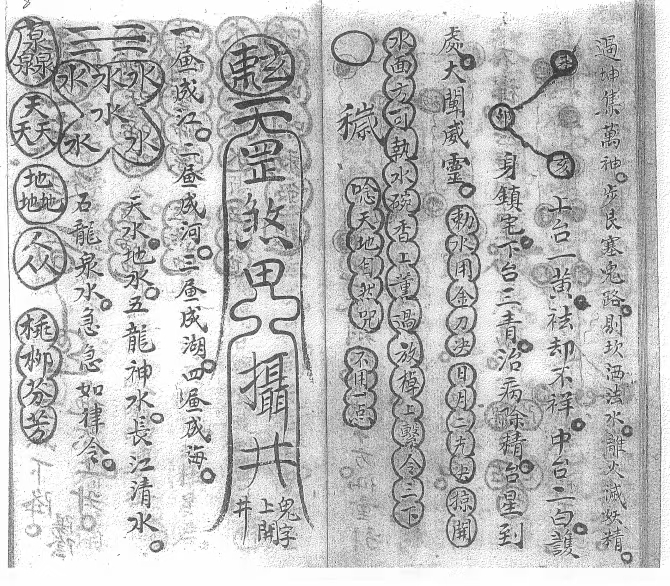 過坤集萬神。步艮塞鬼路。剔坎洒法水。離火滅妖精。
上台一黃祛却不祥。中台二白護
身鎮宅。下台三青治病除精。台星到
處。大闡威靈。
勅水用金刀决日月二光决掠開
水面方可執水碗香上薰過放棹上擊令三下
穢 唸天地自然咒 不用一点
天罡煞 攝井
井 上開 字
一画成江。二画成河。三画成湖。四画成海。
水水水水水 天水地水。五龍神水。長江清水。
五龍泉水。急急如律令。
泉泉 天天天 地地地 人人人 桃柳芬芳 下降。